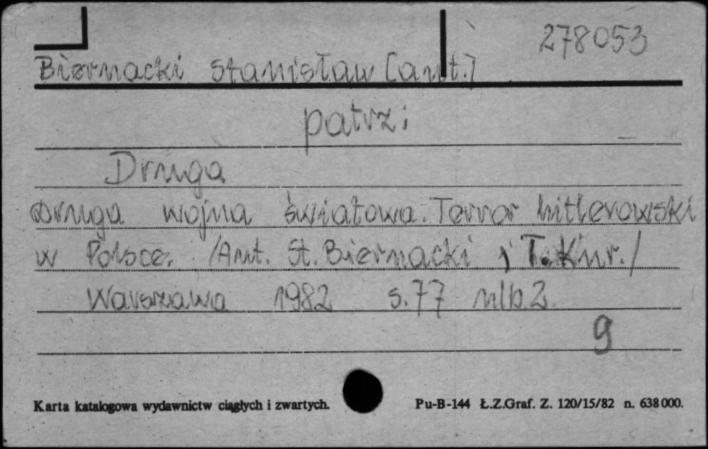 278053
Biernacki Stanisław [aut.]
patrz:
Druga
Druga wojna światowa. Terror hitlerowski
w Polsce. /Aut. St. Biernacki, T. Kur./
Warszawa 1982 s. 77 nlb. 2.
9
Karta katalogowa wydawnictw ciągłych i zwartych. Pu-B-144 Ł.Z.Graf. Z. 120/15/82 n. 638000.